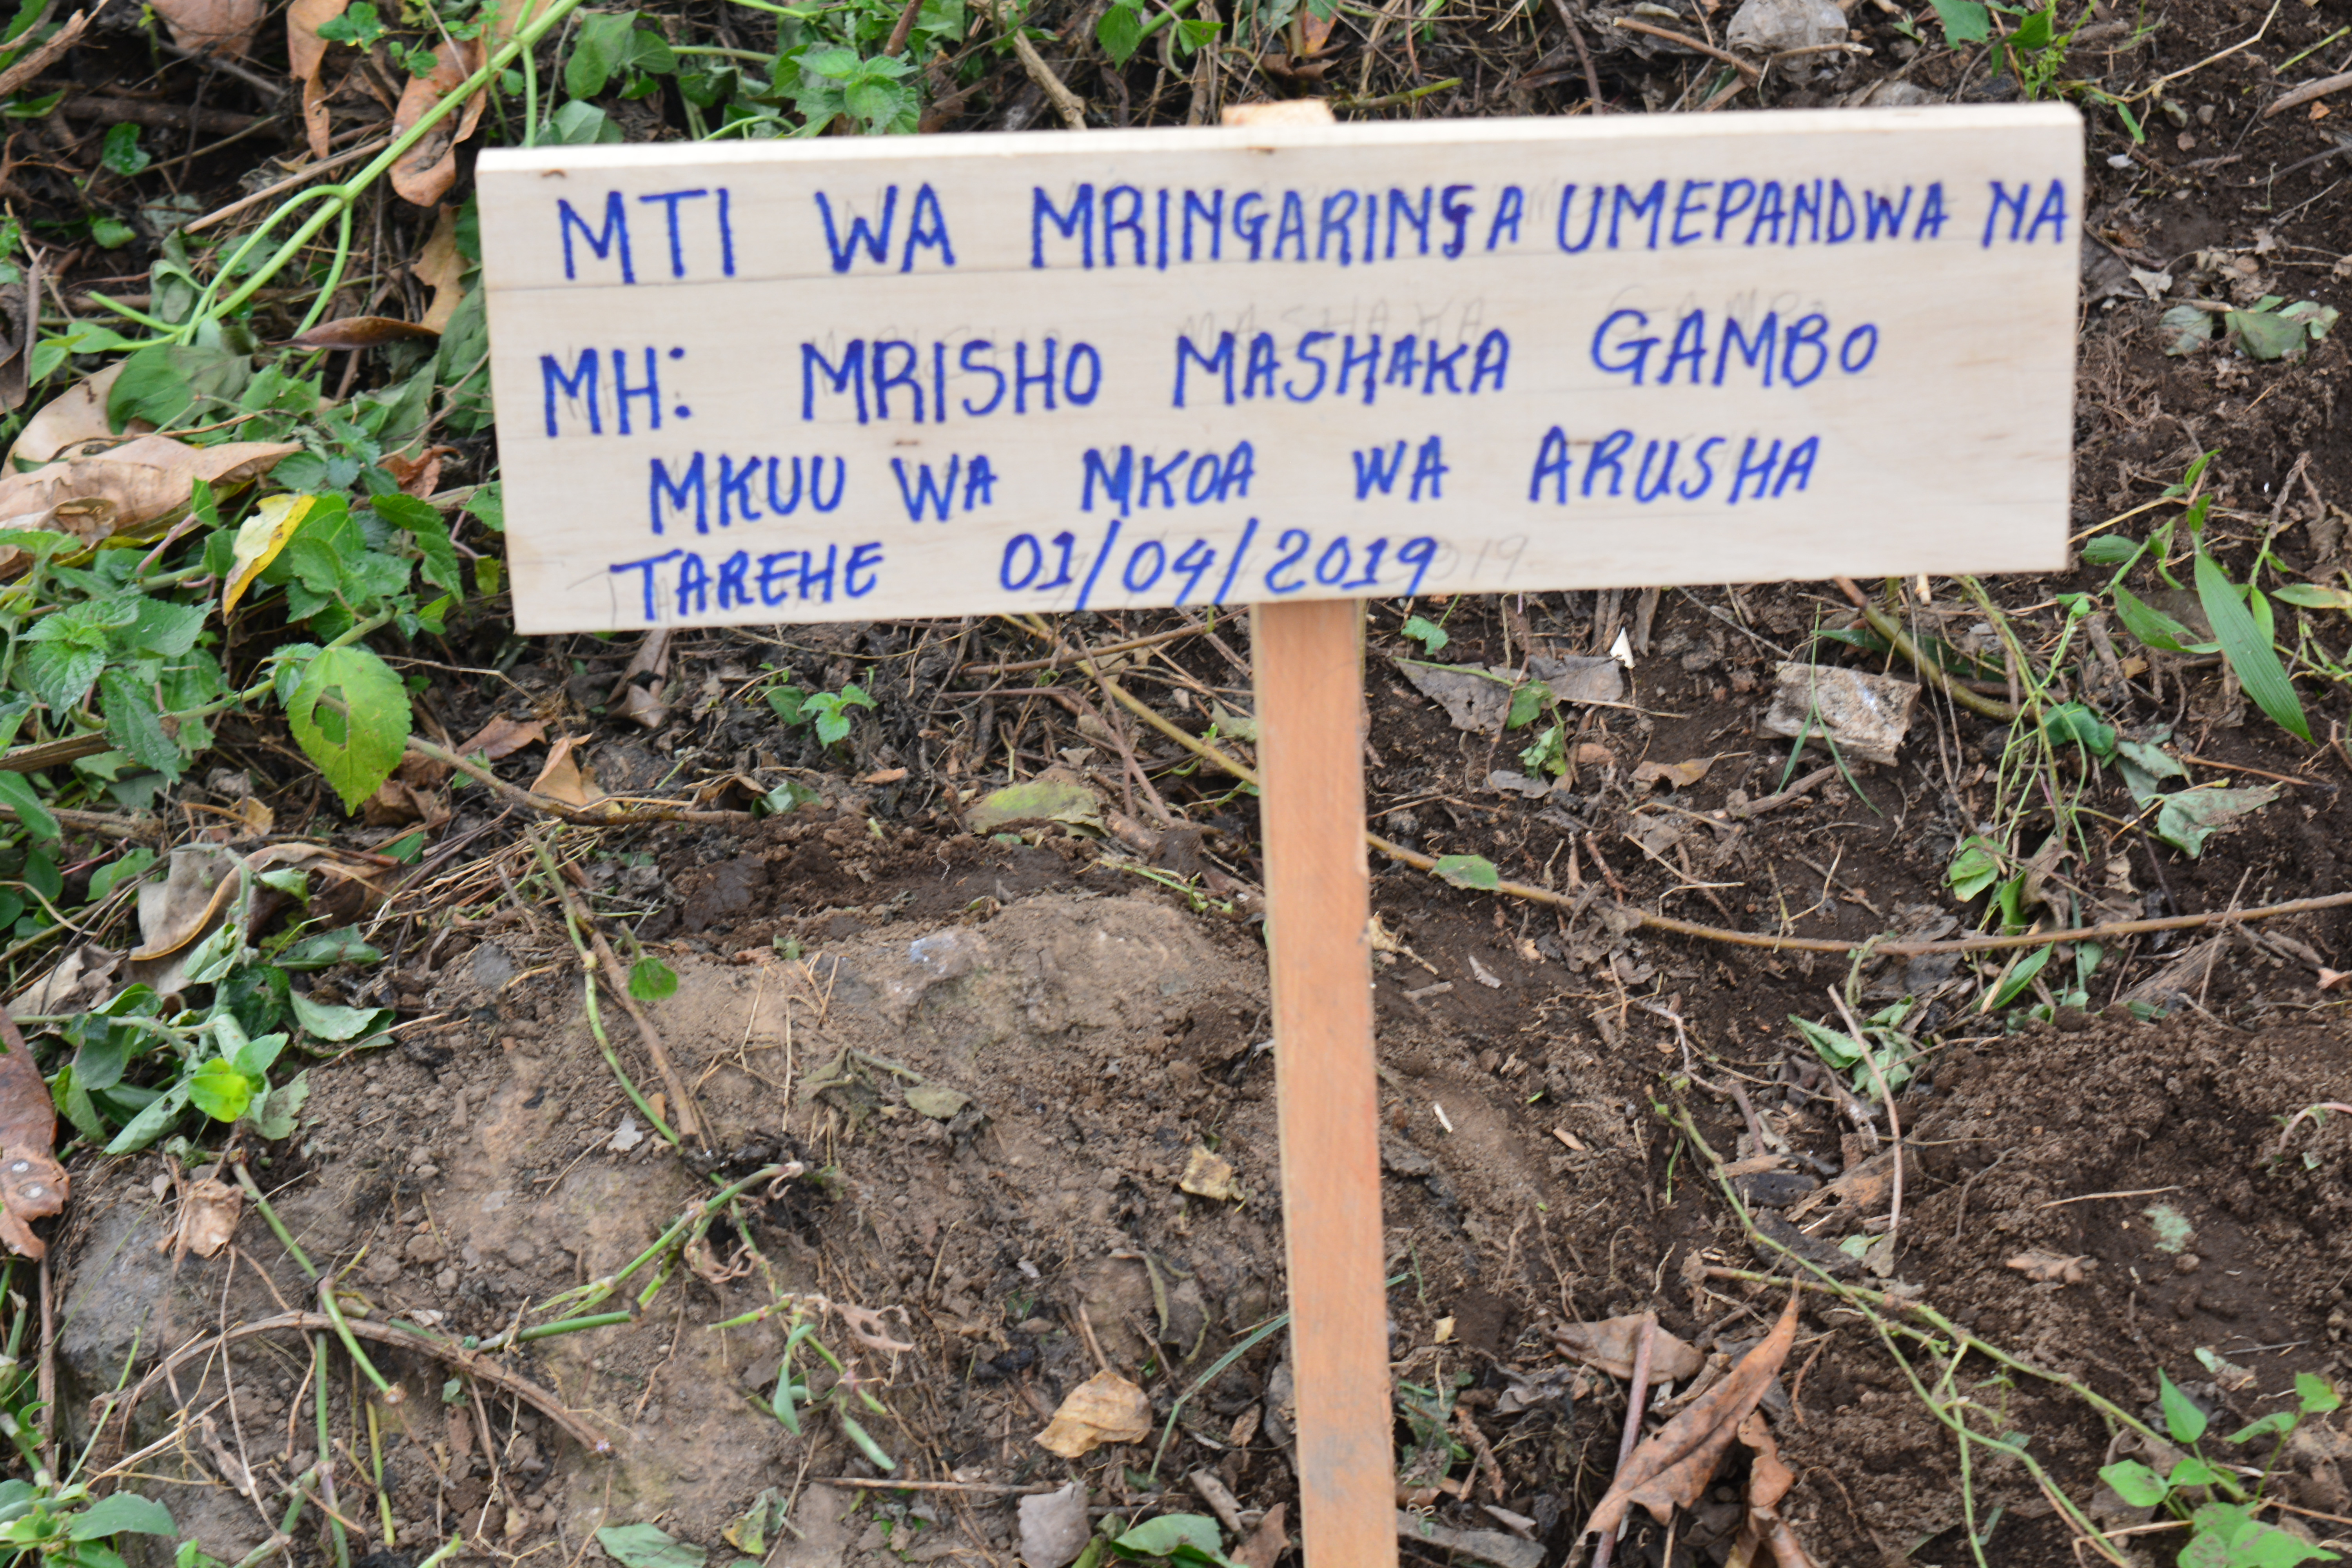 MTI WA MRINGARINGA UMEPANDWA NA
MH: MRISHO MASHAKA GAMBO
MKUU WA MKOA WA ARUSHA
TAREHE 01/04/2019